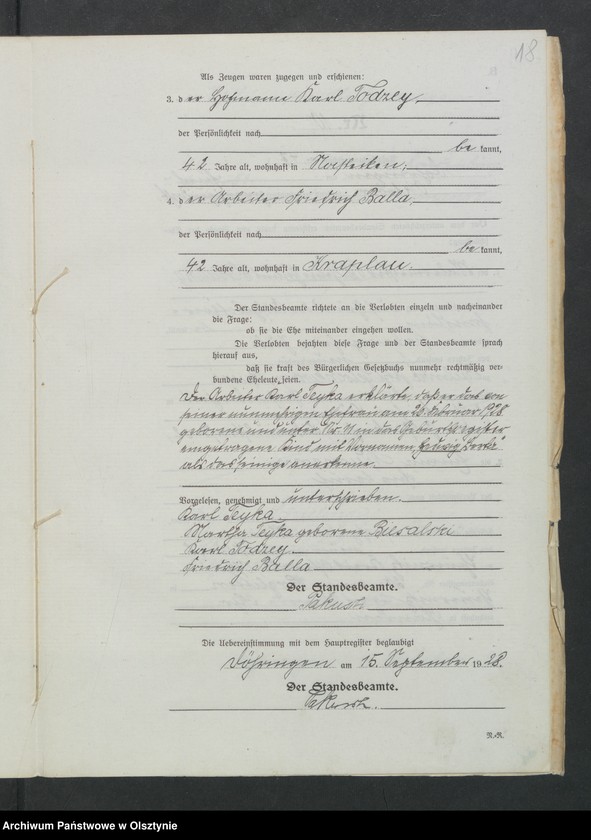 18
Als Zeugen waren zugegen und erschienen:
3. der Hofmann Karl Todzey,
der Persönlichkeit nach
bekannt,
42 Jahre alt, wohnhaft in
4. der Arbeiter Friedrich Balla,
der Persönlichkeit nach
bekannt,
42 Jahre alt, wohnhaft in Kraplau.
Der Standesbeamte richtete an die Verlobten einzeln und nacheinander
die Frage:
ob sie die Ehe miteinander eingehen wollen.
Die Verlobten bejahten diese Frage und der Standesbeamte sprach
hierauf aus,
daß sie kraft des Bürgerlichen Gesetzbuchs nunmehr rechtmäßig ver-
bundene Eheleute seien.
Der Arbeiter Karl Teyka erklärte, daß er das von
seiner nunmehrigen Ehefrau am
geborene und unter Nr. 11 in das Geburtsregister
eingetragene Kind mit Vornamen Hedwig
als das seinige anerkenne.
Vorgelesen, genehmigt und unterschrieben.
Karl Teyka.
Martha Teyka geborene Biesalski
Karl Todzey
Friedrich Balla
Der Standesbeamte.
Die Uebereinstimmung mit dem Hauptregister beglaubigt
Döhringen am 15. September 1928.
Der Standesbeamte.
R.-R.
Archiwum Państwowe w Olsztynie